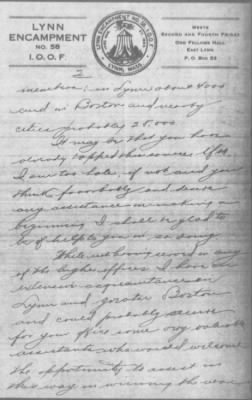 LYNN
ENCAMPMENT
NO. 58
I. O. O. F.
LYNN ENCAMPMENT No. 58 I.O.O.F.
LYNN, MASS.
MEETS
SECOND AND FOURTH FRIDAY
ODD FELLOWS HALL
EAST LYNN
P. O. BOX 53
2
members; in Lynn about 4000
and in Boston and nearby
cities probably 25,000.
It may be that you have
already tapped this source. If so
I am too late; if not and you
think favorably and desire
any assistance in making a
beginning I shall be glad to
be of help to you in so doing
While not being versed in any
of the higher offices I have an
extensive acquaintance in
Lynn and greater Boston
and could probably secure
for your office some very valuable
assistants who would welcome
the opportunity to assist in
this way in winning the war